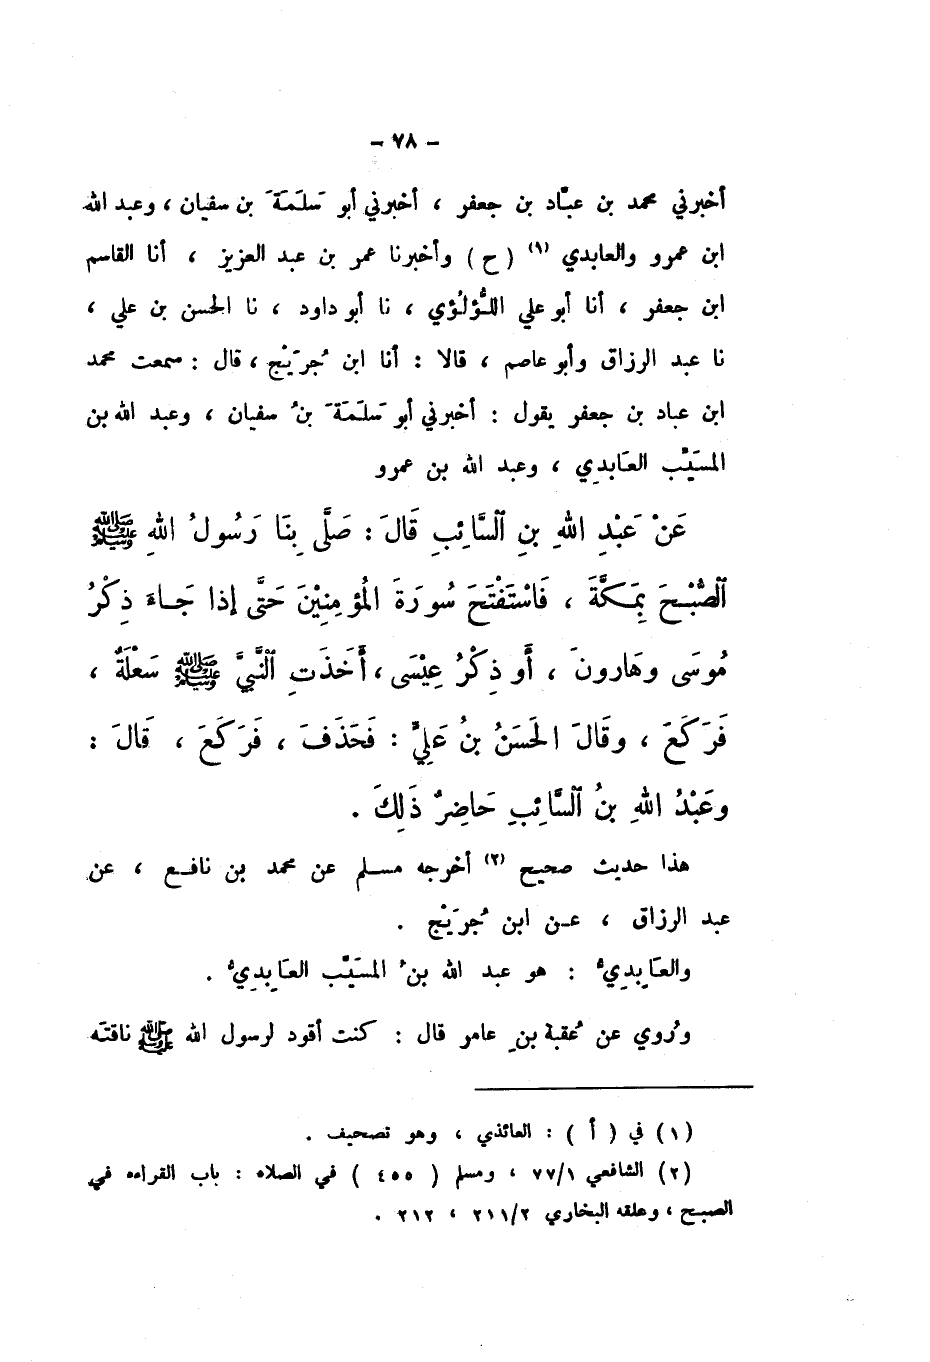 - ٧٨ -
أخبرني محمد بن عبَّاد بن جعفر ، أخبرني أبو سَلَمَةَ بن سفيان ، وعبد الله
ابن عمرو والعابدي (١) ( ح ) وأخبرنا عمر بن عبد العزيز ، أنا القاسم
ابن جعفر ، أنا أبو علي اللُّؤلُؤي ، نا أبو داود ، نا الحسن بن علي ،
نا عبد الرزاق وأبو عاصم ، قالا : أنا ابن جُرَيْج ، قال : سمعت محمد
ابن عباد بن جعفر يقول : أخبرني أبو سَلَمَةَ بنُ سفيان ، وعبد الله بن
المسَيَّب العَابدِي ، وعبد الله بن عمرو
عَنْ عَبْدِ اللهِ بنِ السَّائِبِ قَالَ : صَلَّى بِنَا رَسُولُ اللهِ ﷺ
الصُّبْحَ بِمَكَّةَ ، فَاسْتَفْتَحَ سُورَةَ المُؤمِنِيْنَ حَتَّى إذا جَاءَ ذِكْرُ
مُوسَى وهَارونَ ، أَو ذِكْرُ عِيْسَى ، أَخَذَتِ النَّبِيَّ ﷺ سَعْلَةٌ ،
فَرَكَعَ ، وقَالَ الحَسَنُ بنُ عَلِيٍّ : فَحَذَفَ ، فَرَكَعَ ، قَالَ :
وعَبْدُ اللهِ بنُ السَّائِبِ حَاضِرٌ ذَلِكَ .
هذا حديث صحيح (٢) أخرجه مسلم عن محمد بن نافع ، عن
عبد الرزاق ، عن ابن جُرَيْج .
والعَابِدِيُّ : هو عبد الله بنُ المسَيَّب العَابِدِيُّ .
ورُوي عن عُقبة بنِ عامر قال : كنت أقود لرسول الله ﷺ ناقته
(١) في ( أ ) : العائذي ، وهو تصحيف .
(٢) الشافعي ٧٧/١ ، ومسلم ( ٤٥٥ ) في الصلاة : باب القراءة في
الصبح ، وعلقه البخاري ٢١١/٢ ، ٢١٢ .